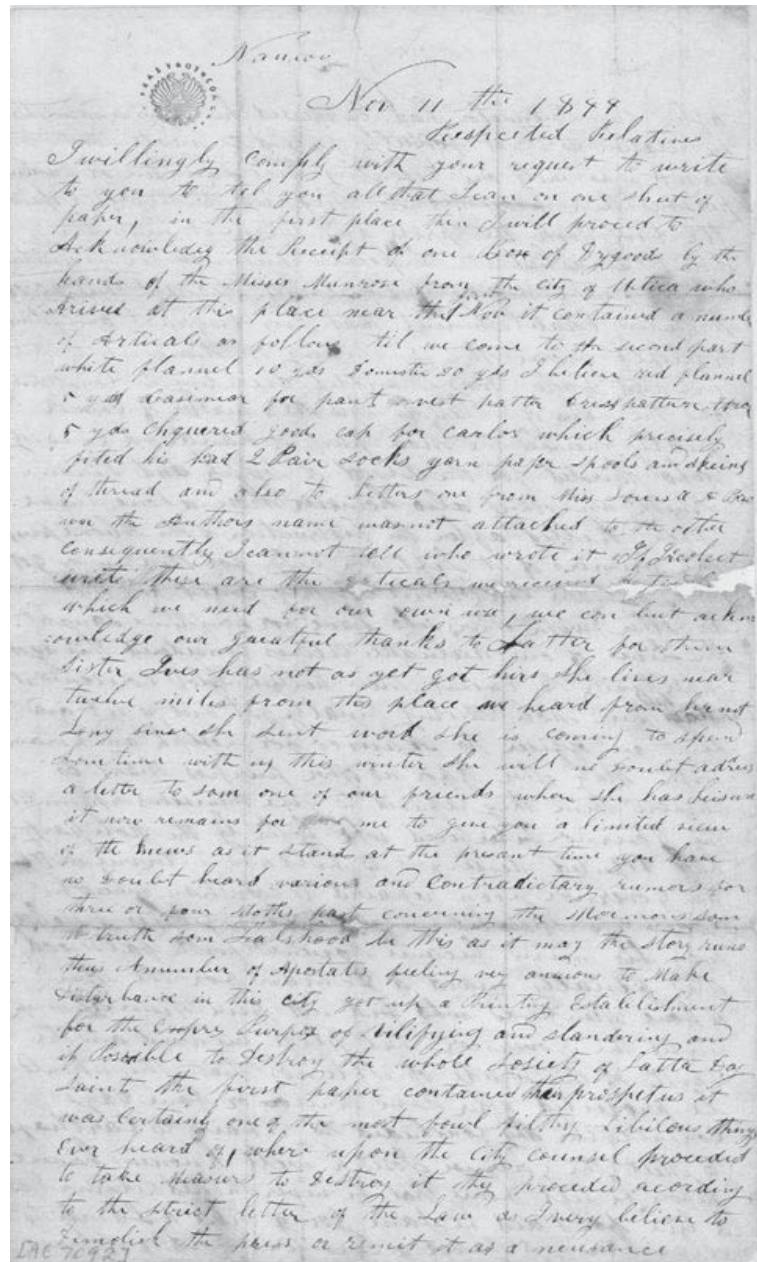 Nauvoo
Nov 11 the 1844
Respected Relatives
I willingly comply with your request to write
to you to tel you all that I can on one sheet of
paper, in the first place then I will proced to
Acknowledg the Receipt of one Box of Drygoods by the
hands of the Misses Munrose from the city of Utica who
Arived at this place near the Nov it contained a
of Articals as follows til we come to the second part
white flannel 10 yds Domestic 20 yds I believe red flannel
5 yds Casimear for pants vest patter Dress patturn
5 yds Chquered goods cap for carlos which precisely
fited his had 2 Pair Socks yarn paper Spools and skeins
of thread and also to letters one from Miss Louisa
the Authors name was not attached to the other
Consequently I cannot tell who wrote it If I recolect
these are the articals we received
which we need for our own use, we can but ackn
owledge our thanks to for them
Sister Ives has not as yet got hirs She lives near
twelve miles from this place we heard from her not
Long since she sent word she is coming to spend
somtime with us this winter She will no doubt adress
a lette to som one of our friends when she has leisure
it now remains for me to give you a limited view
of the news as it stand at the presant time you have
no doubt heard various and Contradictary rumors for
three or four Moths past concerning the Mormons som
truth som Fialshood be this as it may the story runs
thus A number of Apostates feeling very anxious to Make
Disturbance in this city got up a Printing Establishment
for the Purpos of vilifying and slandering and
if Possible to Destroy the whole Losiety of Latta Day
Saints the first paper contained prospetus it
was Certainly one of the most fowl filthy Libilous things
Ever heard of, where upon the City Counsel proceded
to take to Destroy it thy proceded acording
to the strict letter of the Law as I very believe to
the press or remit it as a neusance
[AC 7092]